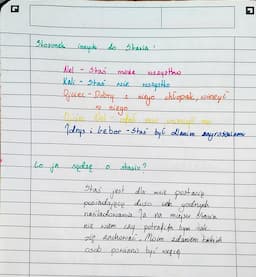 Stosunek innych do Stasia:
Nel - Staś może wszystko
Kali - Staś wie wszystko
Ojciec - Dobry z niego chłopak, wierzyć
w niego
Idrys i Gebor - Staś był
Co ja sądzę o Stasiu?
Staś jest dla mnie postacią
posiadającą dużo cech godnych
naśladowania. Ja na miejscu Stasia
nie wiem czy potrafiła bym tak
się zachować. Moim zdaniem takich
osób powinno być więcej